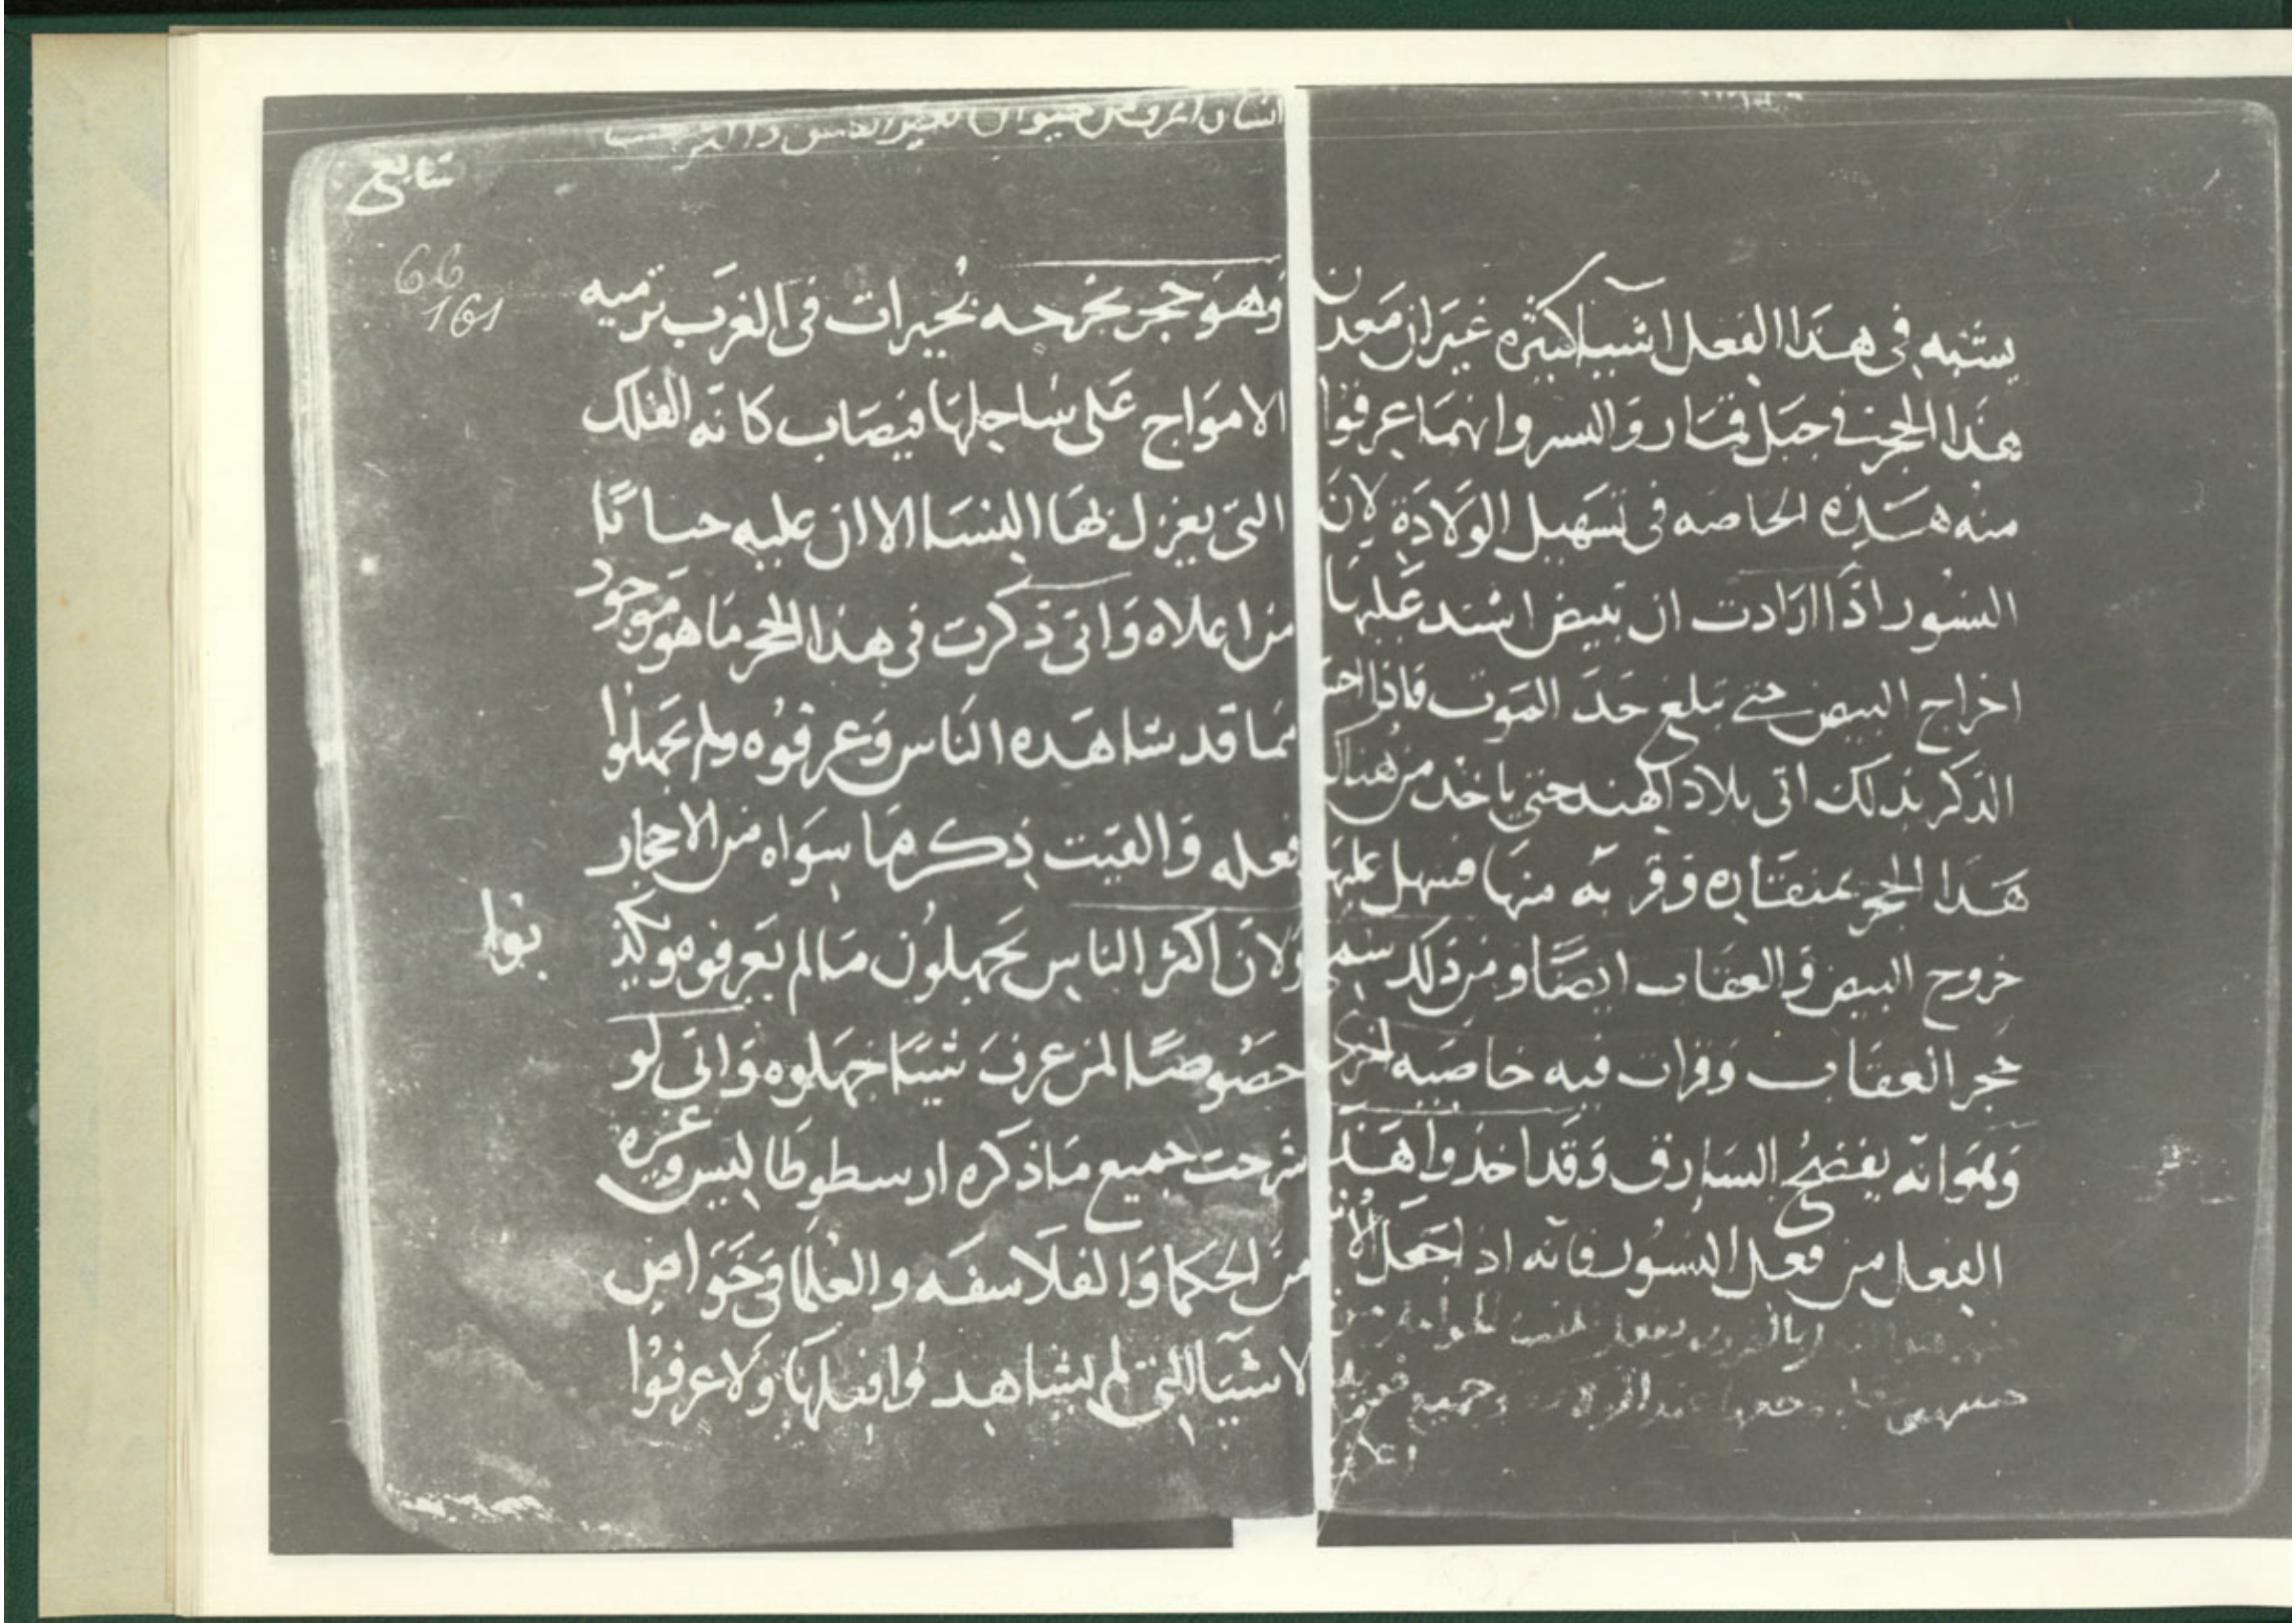 يشبه فى هذا الفعل اشيا كثيره غير ان معدن
هذا الحجر فى جبل قمار والسر وانهما عرفوا
منه هذه الخاصه فى تسهيل الولادة لان
النسور اذا ارادت ان تبيض اشتد عليها
اخراج البيض حتى تبلغ حد الموت فاذا احس
الذكر بذلك اتى بلاد الهند حتى ياخذ من هناك
هذا الحجر بمنقاره وقربه منها فسهل عليها
خروج البيض والعقاب ايضا ومن ذلك سمى
حجر العقاب وقرات فيه خاصيه اخرى
وهو انه يفضح السارق وقد اخذوا هذا
الفعل من فعل النسور فانه اذ اجعل
وجميع
تابع
66
161
وهو حجر يخرجه بحيرات فى الغرب ترميه
الامواج على ساحلها فيصاب كانه الفلك
التى يعزل لها النسا الا ان عليه حساتا
من اعلاه وانى ذكرت فى هذا الحجر ما هو موجود
مما قد شاهده الناس وعرفوه ولم يجهلوا
فعله والقيت ذكر ما سواه من الاحجار
ولان اكثر الناس يجهلون ما لم يعرفوه وكذ
بوا
خصوصا لمن عرف شيا جهلوه وانى لو
شرحت جميع ما ذكره ارسطوطاليس وغيره
من الحكما والفلاسفه والعلما فى خواص
الاشيا التى لم يشاهدوا فعلها ولا عرفوا